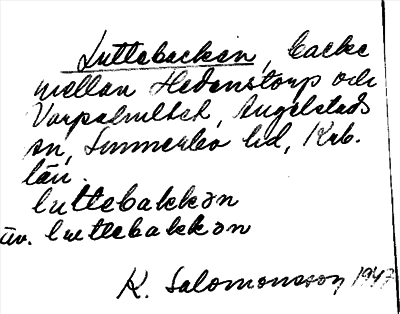 Luttebacken, backe
mellan Hedenstorp och
Angelstads
sn, Sunnerbo hd, Krb.
län.
luttebakkən
üv. luttebakkən
K. Salomonsson 1947